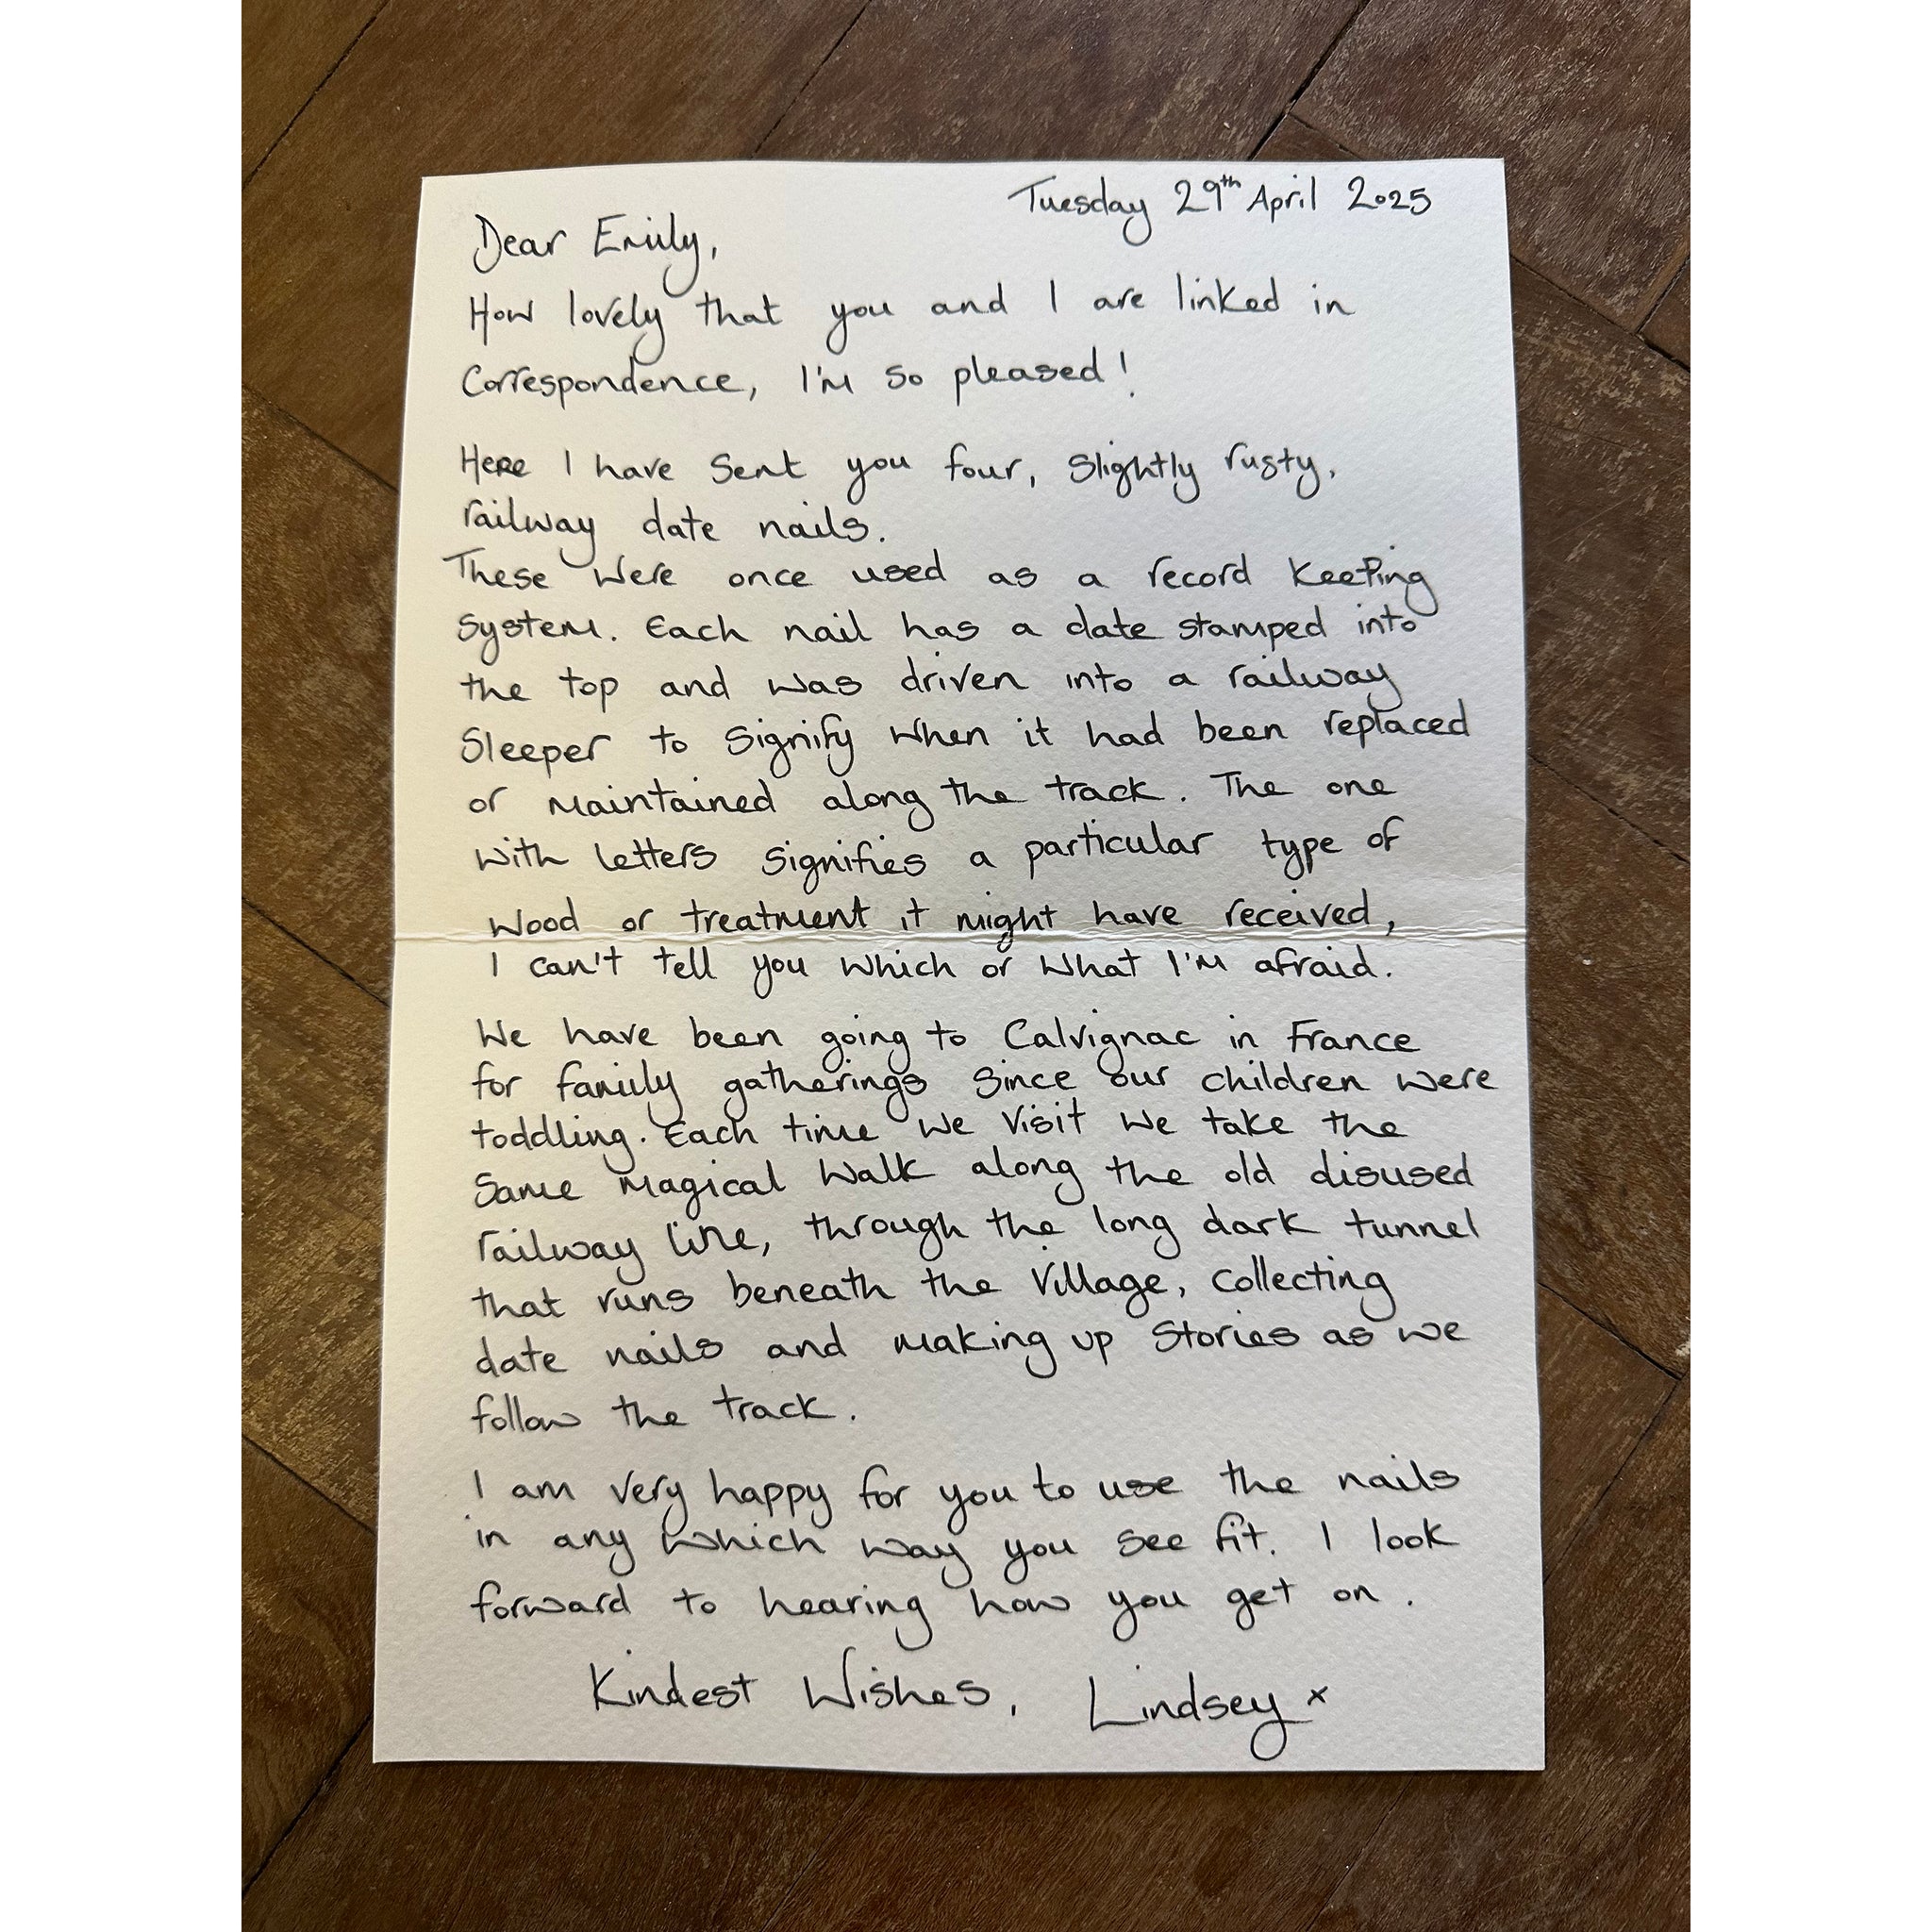 Tuesday 29th April 2025
Dear Emily,
How lovely that you and I are linked in
Correspondence, I'm so pleased!
Here I have sent you four, slightly rusty,
railway date nails.
These were once used as a record keeping
system. Each nail has a date stamped into
the top and was driven into a railway
Sleeper to signify when it had been replaced
or maintained along the track. The one
with letters signifies a particular type of
wood or treatment it might have received,
I can't tell you which or what I'm afraid.
We have been going to Calvignac in France
for family gatherings since our children were
toddling. Each time we visit we take the
same magical walk along the old disused
railway line, through the long dark tunnel
that runs beneath the village, collecting
date nails and making up stories as we
follow the track.
I am very happy for you to use the nails
in any which way you see fit. I look
forward to hearing how you get on.
Kindest Wishes, Lindsey x